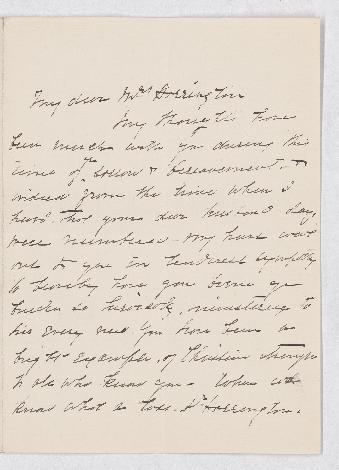 My dear Mrs Dorrington
My thoughts have
been much with you during this
time of yr sorrow & bereavement &
indeed from the time when I
heard that your dear husband's days
were numbered - my heart went
out to you in tenderest sympathy
so bravely have you borne yr
burden so heroically, ministering to
his every need. You have been a
bright example, of Christian strength
to all who know you - When we
know what a loss. Dr Dorrington.